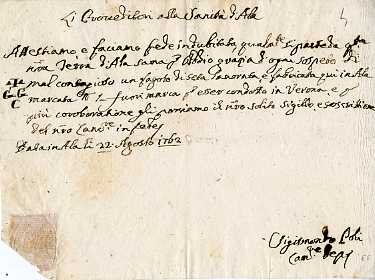 Li Proveditori alla Sanità d'Ala
Attestiamo e faciamo fede indubitata qualmte si parte da qta
nra Terra d'Ala sana p Iddio gratia d'ogni sospetto di
mal contagioso un fagoto di seta lavorata e fabricata qui in Ala
G G C
marcata fuori marca p esser condotto in Verona e p
più coroboratione gli poniamo il nro solito sigillo e soscritione
del nro Cancre in fede
Data in Ala li 22 Agosto 1762
Sigismondo
Cancre